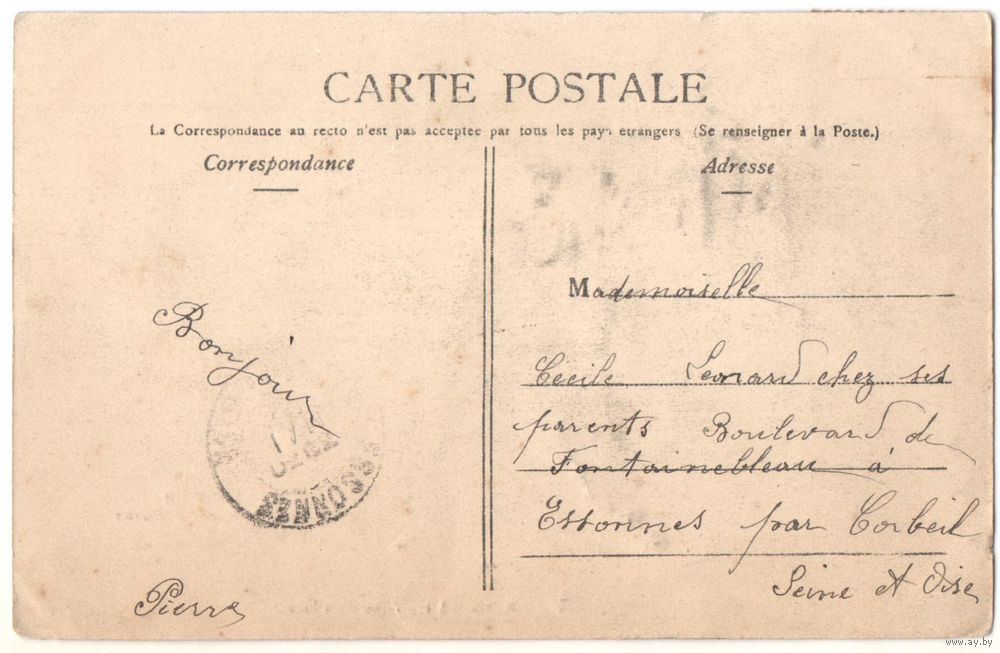 CARTE POSTALE
La Correspondance au recto n'est pas acceptee par tous les pays etrangers (Se renseigner à la Poste.)
Correspondance
Bonjour
ESSONNES
Pierre
Adresse
Mademoiselle
Cécile Leonard chez ses
parents Boulevard de
Fontainebleau à
Essonnes par Corbeil
Seine et Oise
www.ay.by